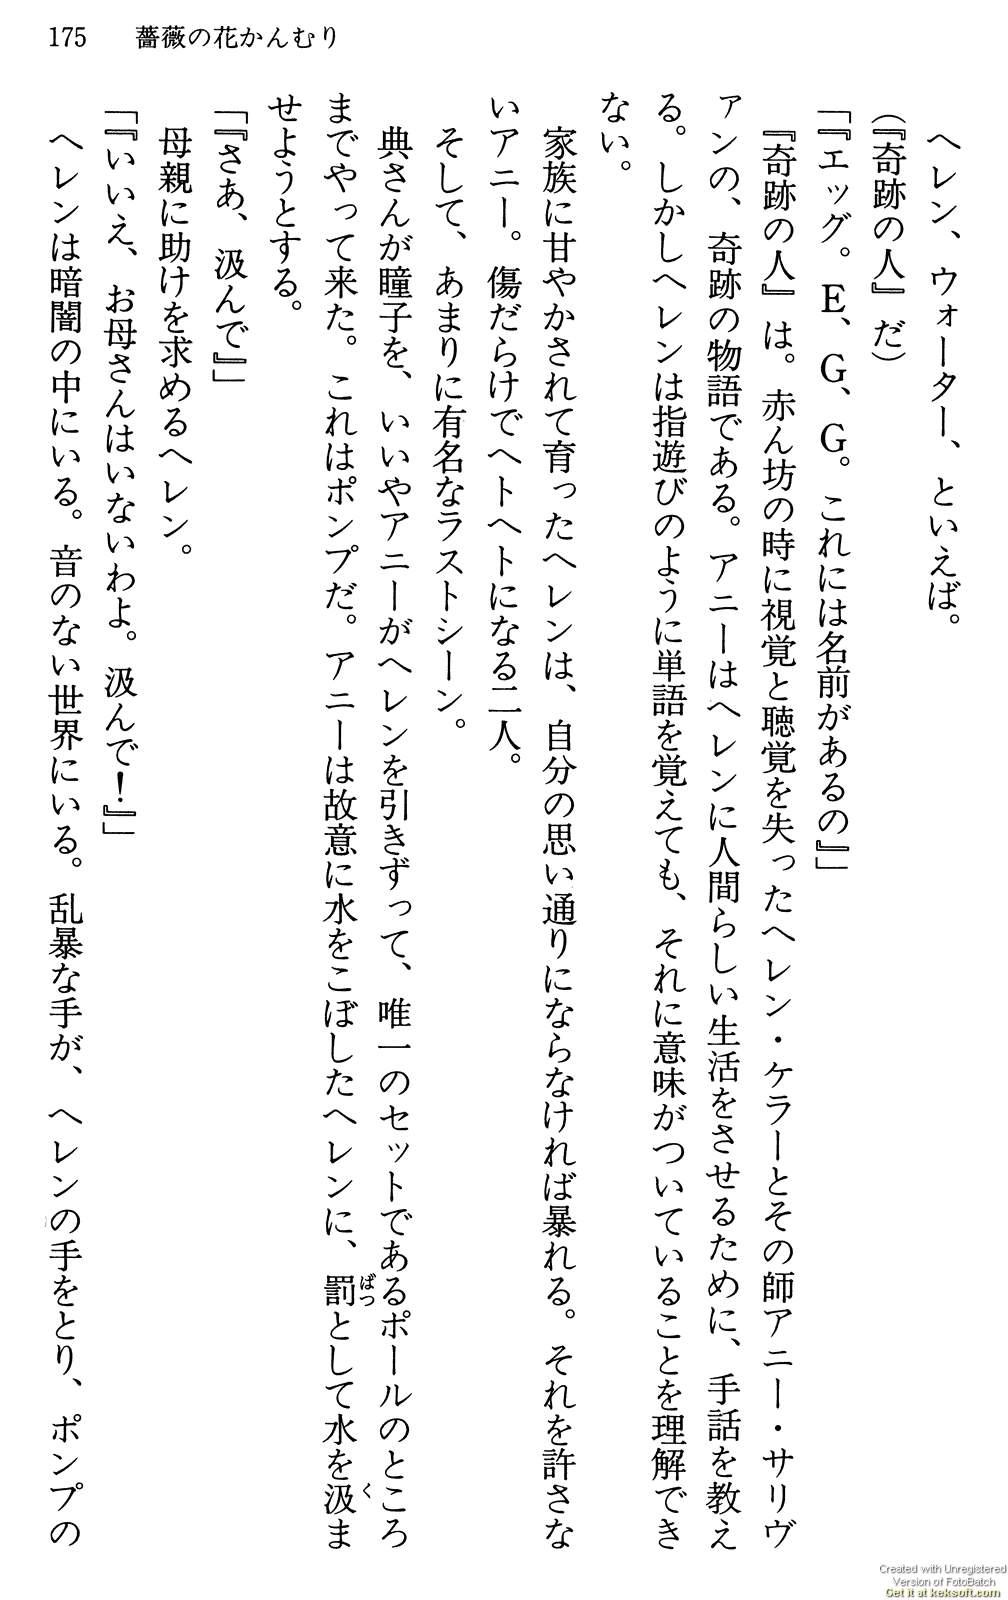 175 薔薇の花かんむり
ヘレン、ウォーター、といえば。
(『奇跡の人』だ)
「『エッグ。E、G、G。これには名前があるの』」
『奇跡の人』は。赤ん坊の時に視覚と聴覚を失ったヘレン・ケラーとその師アニー・サリヴ
ァンの、奇跡の物語である。アニーはヘレンに人間らしい生活をさせるために、手話を教え
る。しかしヘレンは指遊びのように単語を覚えても、それに意味がついていることを理解でき
ない。
家族に甘やかされて育ったヘレンは、自分の思い通りにならなければ暴れる。それを許さな
いアニー。傷だらけでヘトヘトになる二人。
そして、あまりに有名なラストシーン。
典さんが瞳子を、いいやアニーがヘレンを引きずって、唯一のセットであるポールのところ
までやって来た。これはポンプだ。アニーは故意に水をこぼしたヘレンに、罰ばつとして水を汲くま
せようとする。
「『さあ、汲んで』」
母親に助けを求めるヘレン。
「『いいえ、お母さんはいないわよ。汲んで!』」
ヘレンは暗闇の中にいる。音のない世界にいる。乱暴な手が、ヘレンの手をとり、ポンプの
Created with Unregistered
Version of FotoBatch
Get it at keksoft.com